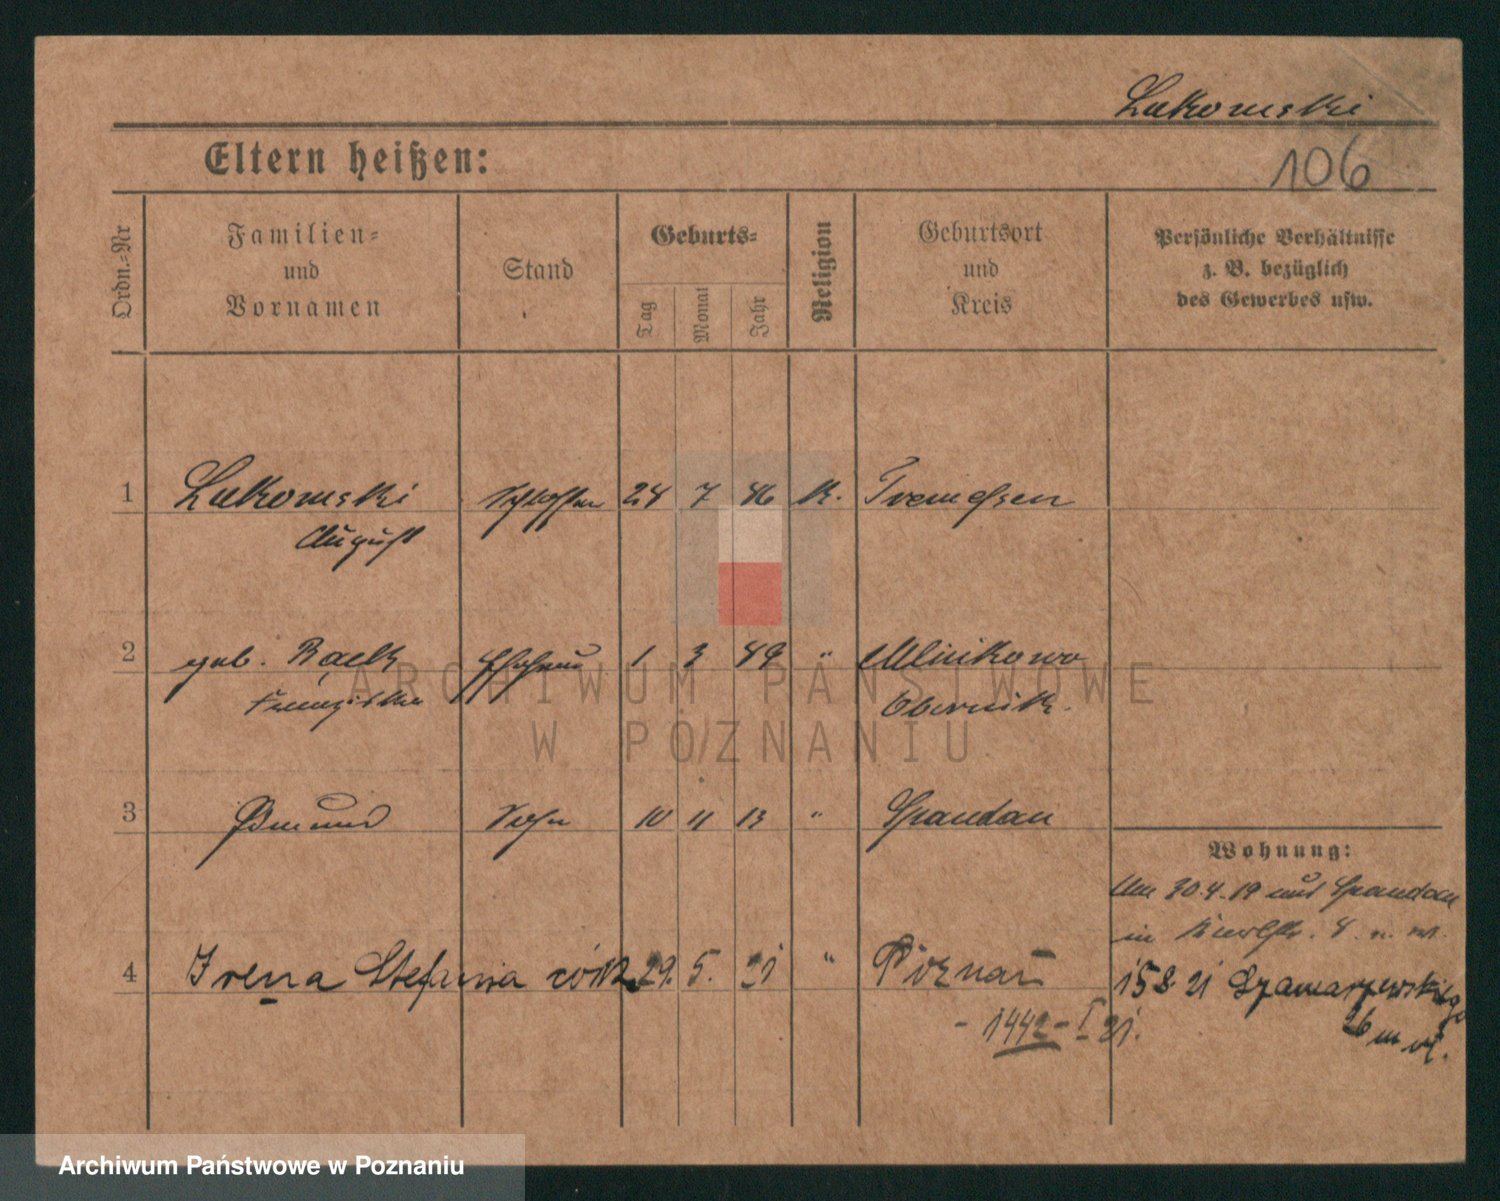 Lukomski
106
Eltern heißen:
Ordn.-Nr
Familien-
und
Vornamen
Stand
Geburts-
Tag
Monat
Jahr
Religion
Geburtsort
und
Kreis
Persönliche Verhältnisse
z. B. bezüglich
des Gewerbes usw.
1 Lukomski Schlosser 24 7 86 K. Tremessen
August
2 geb. Ehefrau 1 3 89 " Mlinkowo
Franziska Obornik.
3 Edmund Sohn 10 11 13 " Spandau
Wohnung:
30.4.19 aus Spandau
in
4 Irena Stefania córk. 29. 5. 21 " Poznań
15 8. 21 Szamarzewskiego
- 1442 - I 21.
26 m
ARCHIWUM PAŃSTWOWE
W POZNANIU
Archiwum Państwowe w Poznaniu